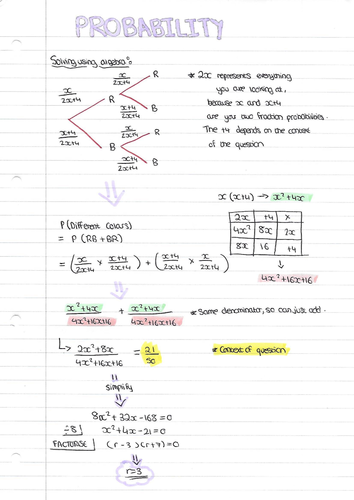 PROBABILITY
Solving using algebra:
x/2x+4 R
x/2x+4 R
x+4/2x+4 B
x+4/2x+4 B
x/2x+4 R
x+4/2x+4 B
* 2x represents everything
you are looking at,
because x and x+4
are you two fraction probabilities.
The +4 depends on the context
of the question
x(x+4) → x²+4x
2x +4 x
4x² 8x 2x
8x 16 +4
4x²+16x+16
P(Different Colours)
= P (RB + BR)
= (x/2x+4 × x+4/2x+4) + (x+4/2x+4 × x/2x+4)
x²+4x/4x²+16x+16 + x²+4x/4x²+16x+16 * Same denominator, so can just add.
↳ 2x²+8x/4x²+16x+16 = 21/50 * Context of question
simplify
8x² + 32x - 168 = 0
÷8 x² + 4x - 21 = 0
FACTORISE (r-3)(r+7)=0
r=3